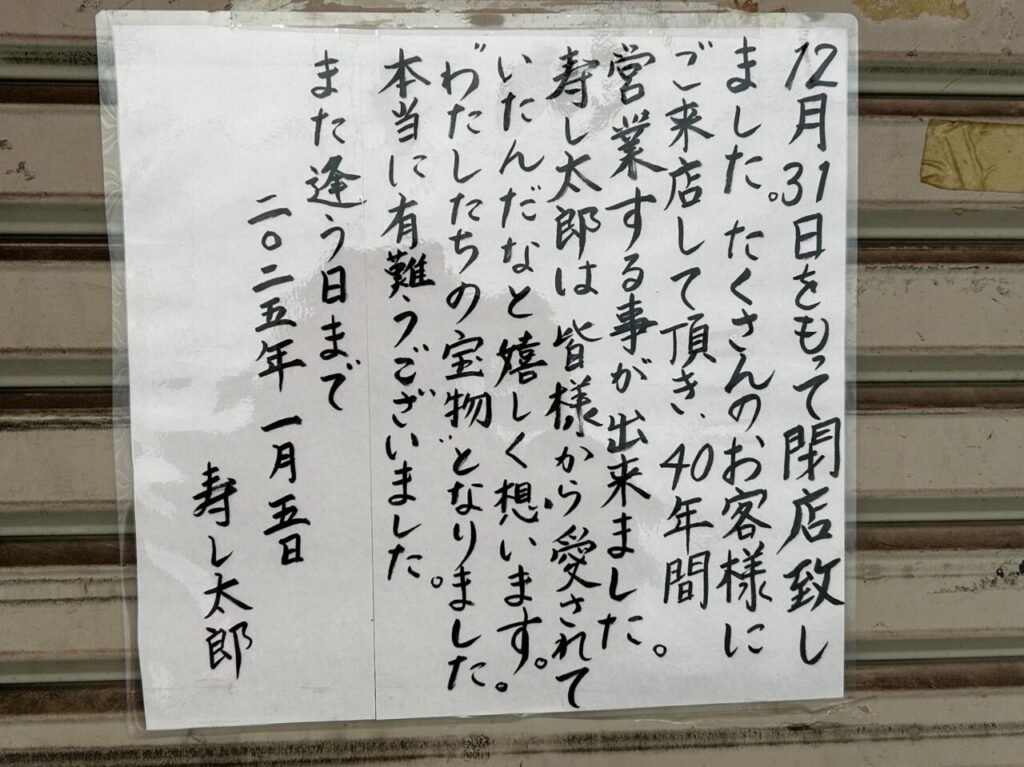 12月31日をもって閉店致し
ました。たくさんのお客様に
ご来店して頂き、40年間
営業する事が出来ました。
寿し太郎は皆様から愛されて
いたんだなと嬉しく想います。
"わたしたちの宝物"となりました。
本当に有難うございました。
また逢う日まで
二〇二五年 一月五日
寿し太郎